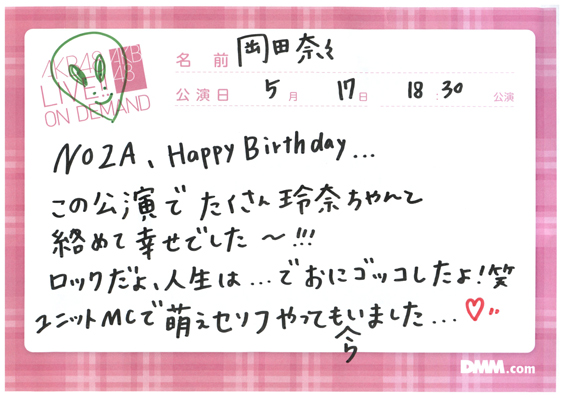 AKB48
LIVE!!
ON DEMAND
AKB
48
名前 岡田奈々
公演日 5月 17日 18:30 公演
NOZA、Happy Birthday...
この公演でたくさん玲奈ちゃんと
絡めて幸せでした〜!!!
ロックだよ、人生は...でおにゴッコしたよ!笑
ユニットMCで萌えセリフやってもらいました...♡
DMM.com